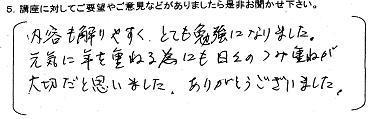 5. 講座に対してご要望やご意見などがありましたら是非お聞かせ下さい。
内容も解りやすく、とても勉強になりました。
元気に年を重ねる為にも日々のつみ重ねが
大切だと思いました。ありがとうございました。